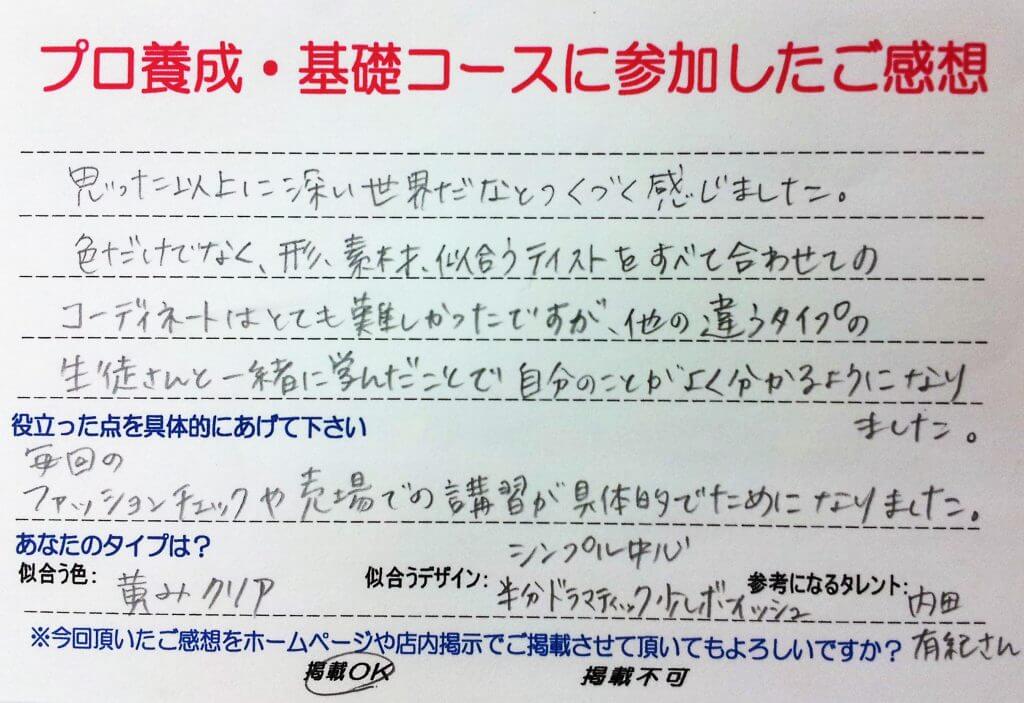 プロ養成・基礎コースに参加したご感想
思った以上に深い世界だなとつくづく感じました。
色だけでなく、形、素材、似合うテイストをすべて合わせての
コーディネートはとても難しかったですが、他の違うタイプの
生徒さんと一緒に学んだことで自分のことがよく分かるようになり
ました。
役立った点を具体的にあげて下さい
毎回の
ファッションチェックや売場での講習が具体的でためになりました。
あなたのタイプは?
シンプル中心
似合う色: 黄みクリア 似合うデザイン: 半分ドラマティック・少しボーイッシュ 参考になるタレント: 内田
有紀さん
※今回頂いたご感想をホームページや店内掲示でご掲載させて頂いてもよろしいですか?
掲載OK 掲載不可